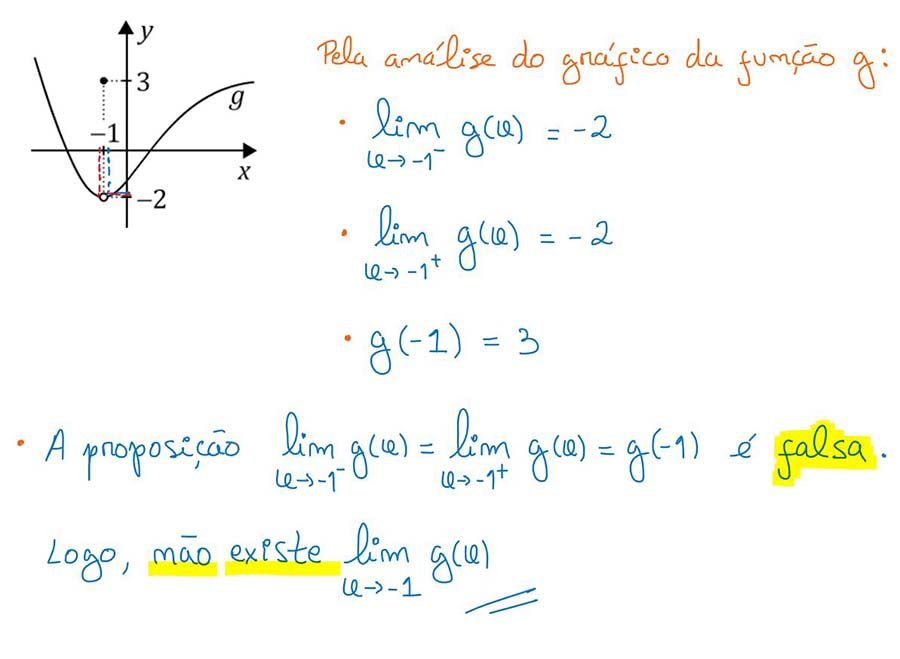 y
3
g
−1
x
−2
Pela análise do gráfico da função g:
• lim g(x) = -2
x→-1⁻
• lim g(x) = -2
x→-1⁺
• g(-1) = 3
• A proposição lim g(x) = lim g(x) = g(-1) é falsa.
x→-1⁻ x→-1⁺
Logo, não existe lim g(x)
x→-1